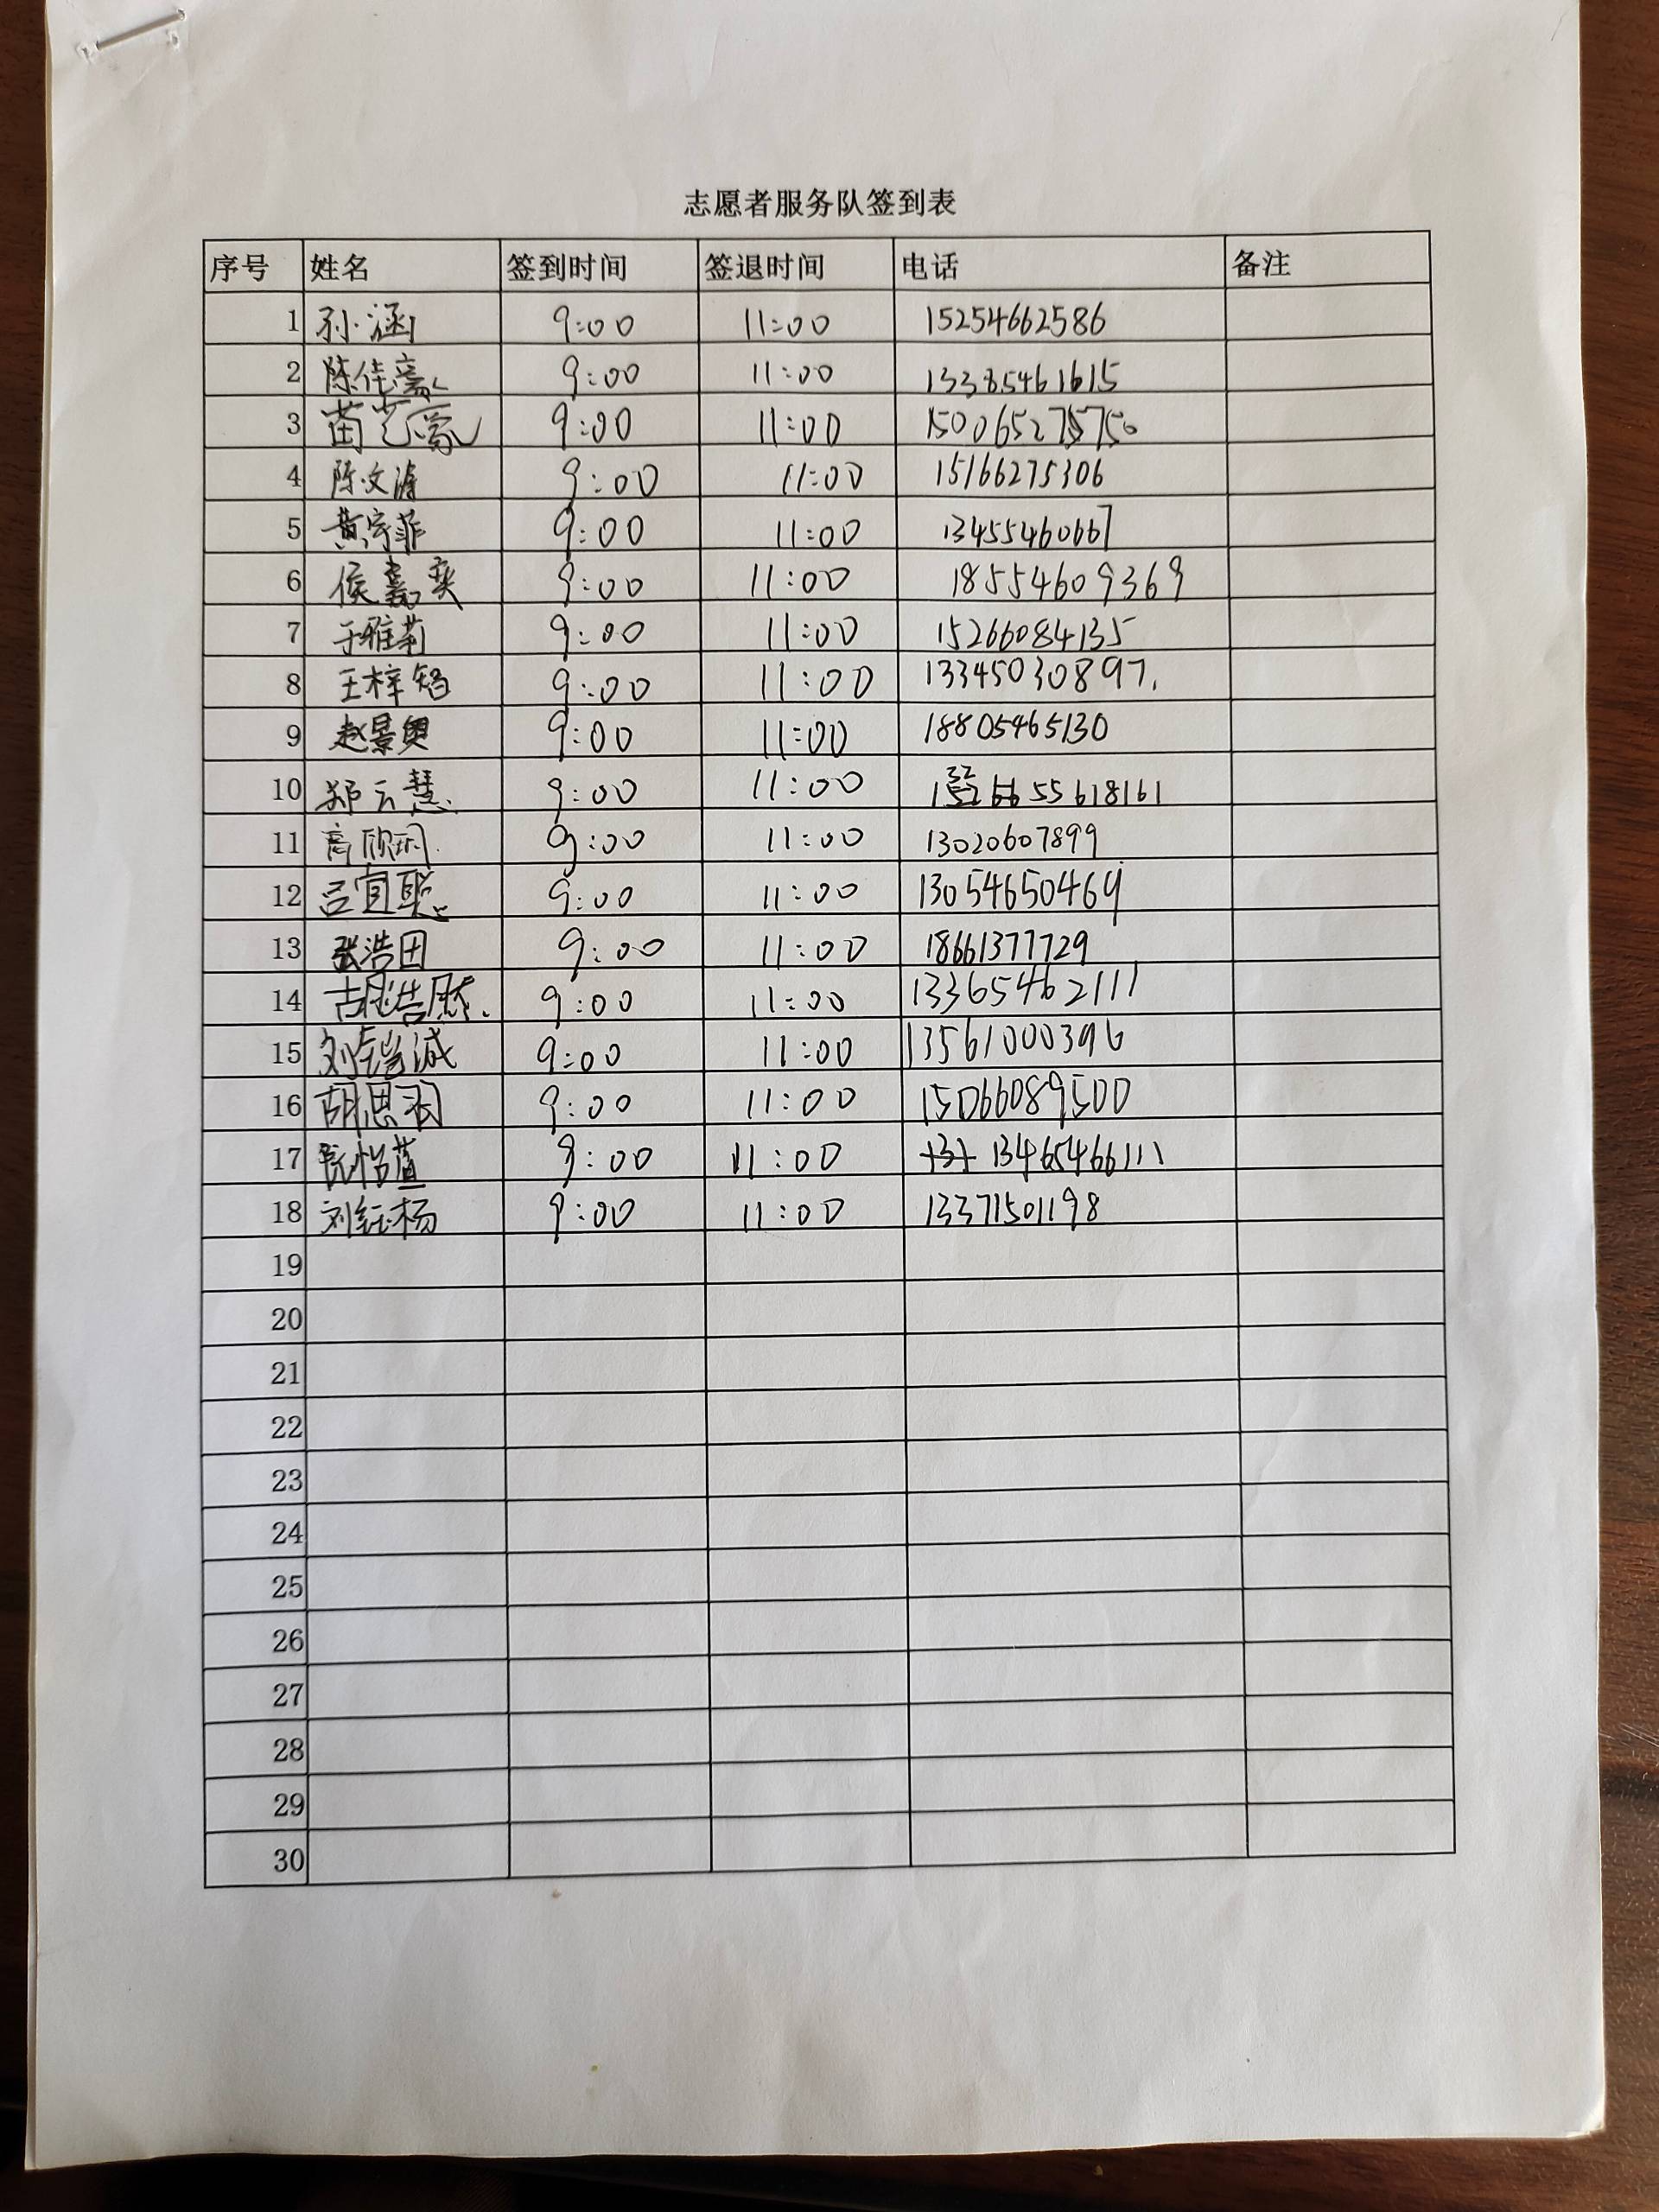 志愿者服务队签到表
序号 姓名 签到时间 签退时间 电话 备注
1 孙涵 9:00 11:00 15254662586
2 陈佳 9:00 11:00 13385461615
3 苗艺 9:00 11:00
4 陈文涛 9:00 11:00 15166275306
5 黄宇菲 9:00 11:00 13455460667
6 侯嘉奕 9:00 11:00 18554609369
7 于雅莉 9:00 11:00 15266084135
8 王梓 9:00 11:00 13345030897.
9 赵景奥 9:00 11:00 18805465130
10 郑云慧 9:00 11:00
11 高欣玥 9:00 11:00 13020607899
12 吕宜聪 9:00 11:00 13054650469
13 张浩田 9:00 11:00 18661377729
14 胡浩然 9:00 11:00 13365462111
15 刘铠诚 9:00 11:00 13561000396
16 胡思羽 9:00 11:00 15066089500
17 怡萱 9:00 11:00 13465466111
18 刘钰杨 9:00 11:00 13371501198
19
20
21
22
23
24
25
26
27
28
29
30